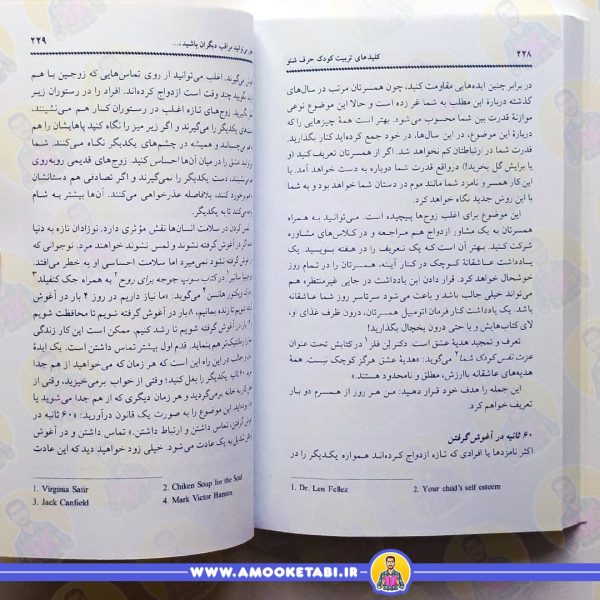 ۲۲۸
کلیدهای تربیت کودک حرف شنو
در برابر چنین ایده‌هایی مقاومت کنید، چون همسرتان مرتب در سال‌های
گذشته دربارهٔ این مطلب به شما غر زده است و حالا این موضوع نوعی
موازنهٔ قدرت بین شما محسوب می‌شود. بهتر است همهٔ چیزهایی را که
دربارهٔ این موضوع، در این سال‌ها، در خود جمع کرده‌اید کنار بگذارید.
قدرت شما در ارتباطتان کم نخواهد شد. اگر از همسرتان تعریف کنید (و
یا برایش گل بخرید!) درواقع قدرت شما دوباره به دست خواهد آمد. با
این کار همسر و نامزد شما مانند موم در دستان شما خواهد بود و به شما
با این روش جدید نگاه خواهد کرد.
این موضوع برای اغلب زوج‌ها پیچیده است. می‌توانید به همراه
همسرتان به یک مشاور ازدواج هم مراجعه و در کلاس‌های مشاوره
شرکت کنید. بهتر آن است که یک تعریف را در هفته بنویسید. یک
یادداشت عاشقانهٔ کوچک در کنار آینه، همسرتان را در تمام روز
خوشحال خواهد کرد. قرار دادن این یادداشت در جایی غیرمنتظره هم
می‌تواند خیلی جالب باشد و باعث می‌شود سرتاسر روز شما عاشقانه
باشد. یک یادداشت کنار فرمان اتومبیل همسرتان، درون ظرف غذای او،
لای کتاب‌هایش و یا حتی درون یخچال بگذارید!
تعرف و تمجید هدیهٔ عشق است. دکتر لن فلز۱ در کتابش تحت عنوان
عزت نفس کودک شما۲ می‌گوید: «هدیهٔ عشق هرگز کوچک نیست. همهٔ
هدیه‌های عاشقانه باارزش، مطلق و نامحدود هستند.»
این جمله را هدف خود قرار دهید: من هر روز از همسرم دو بار
تعریف خواهم کرد.
۶۰ ثانیه در آغوش گرفتن
اکثر نامزدها یا افرادی که تازه ازدواج کرده‌اند همواره یکدیگر را در
1. Dr. Len Fellez 2. Your child's self esteem
می‌توانید مراقب دیگران باشید....
۲۲۹
می‌گیرند. اغلب می‌توانید از روی تماس‌هایی که زوجین با هم
بگویید چند وقت است ازدواج کرده‌اند. افراد را در رستوران زیر
بگیرید. زوج‌های تازه اغلب در رستوران کنار هم می‌نشینند،
دست‌های یکدیگر را می‌گیرند و اگر زیر میز را نگاه کنید پاهایشان را هم
می‌چسبانند و همیشه در چشم‌های یکدیگر نگاه می‌کنند. شما
عشق را در میان آن‌ها احساس کنید. زوج‌های قدیمی روبه‌روی
می‌نشینند، دست یکدیگر را نمی‌گیرند و اگر تصادفی هم دستانشان
برخورد کند، بلافاصله عذرخواهی می‌کنند. آن‌ها بیشتر به شام
تا به یکدیگر.
لمس کردن در سلامت انسان‌ها نقش مؤثری دارد. نوزادان تازه به دنیا
در آغوش گرفته نشوند و لمس نشوند خواهند مرد. نوجوانی که
گرفته نشود نمی‌میرد اما سلامت احساسی او به خطر می‌افتد.
ویرجینیا ساتیر۱ در کتاب سوپ جوجه برای روح۲ به همراه جک کنفیلد۳
ویکتور هانسن۴ می‌گوید: «ما نیاز داریم در روز ۴ بار در آغوش
شویم تا زنده بمانیم، ۸ بار در آغوش گرفته شویم تا محافظت شویم
در آغوش گرفته شویم تا رشد کنیم. ممکن است این کار زندگی
رمانتیک‌تر هم بنماید. قدم اول بیشتر تماس داشتن است. یک ایدهٔ
جالب در این راه این است که هر زمان که می‌خواهید از هم جدا
۶۰ ثانیه یکدیگر را بغل کنید؛ وقتی از خواب برمی‌خیزید، وقتی از
به خانه برمی‌گردید و هر زمان دیگری که از هم جدا می‌شوید یا
بوده‌اید. این موضوع را به صورت یک قانون درآورید: «۶۰ ثانیه در
گرفتن، تماس داشتن و ارتباط داشتن.» تماس داشتن و در آغوش
تبدیل به یک عادت می‌شود. خیلی زود خواهید دید که این عادت
1. Virginia Satir 2. Chiken Soup for the Soul
3. Jack Canfield 4. Mark Victor Hansen
WWW.AMOOKETABI.IR